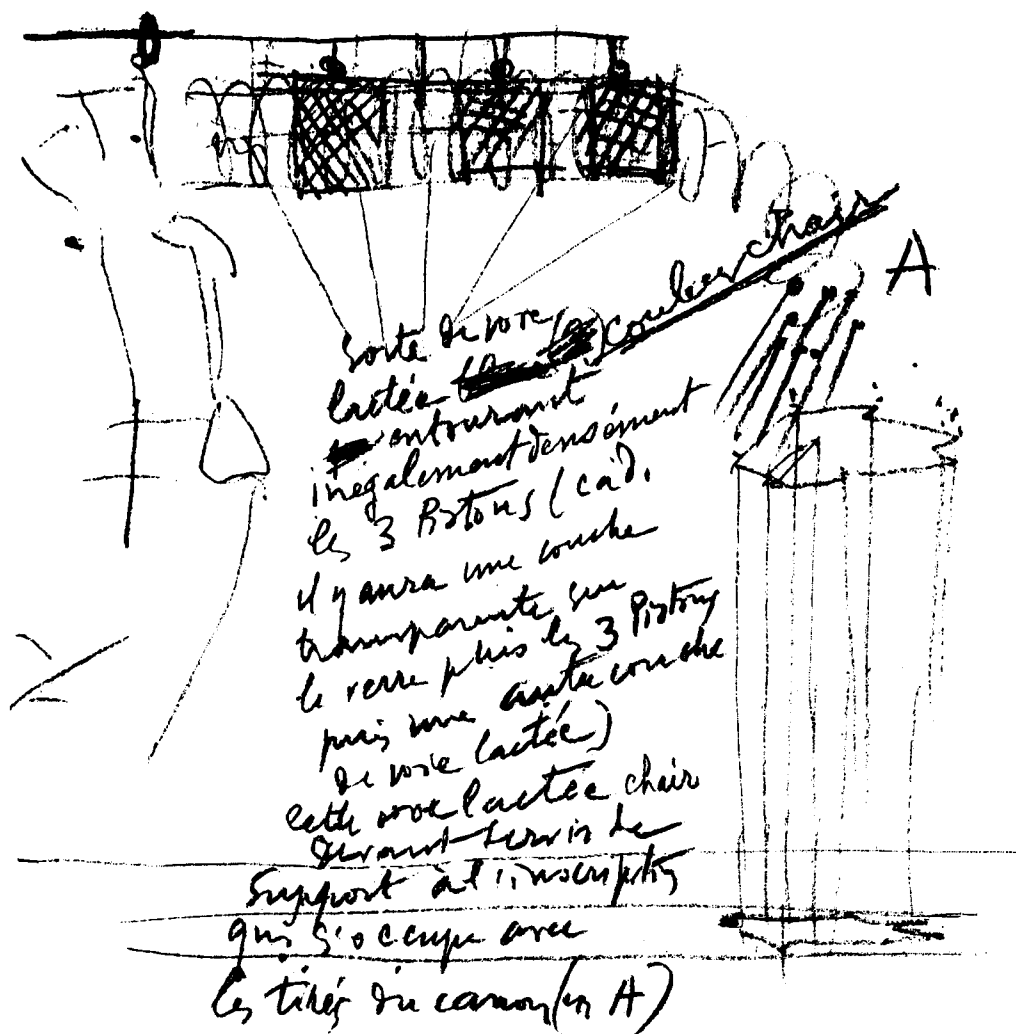 Sorte de voie
lactée couleur chair
entourant
inégalement densément
les 3 Pistons (càd.
il y aura une couche
transparente sur
le verre puis les 3 Pistons
puis une autre couche
de voie lactée)
Cette voie lactée chair
devant servir de
support à l'inscription
qui s'occupe avec
les tirés du canon (en A)
A